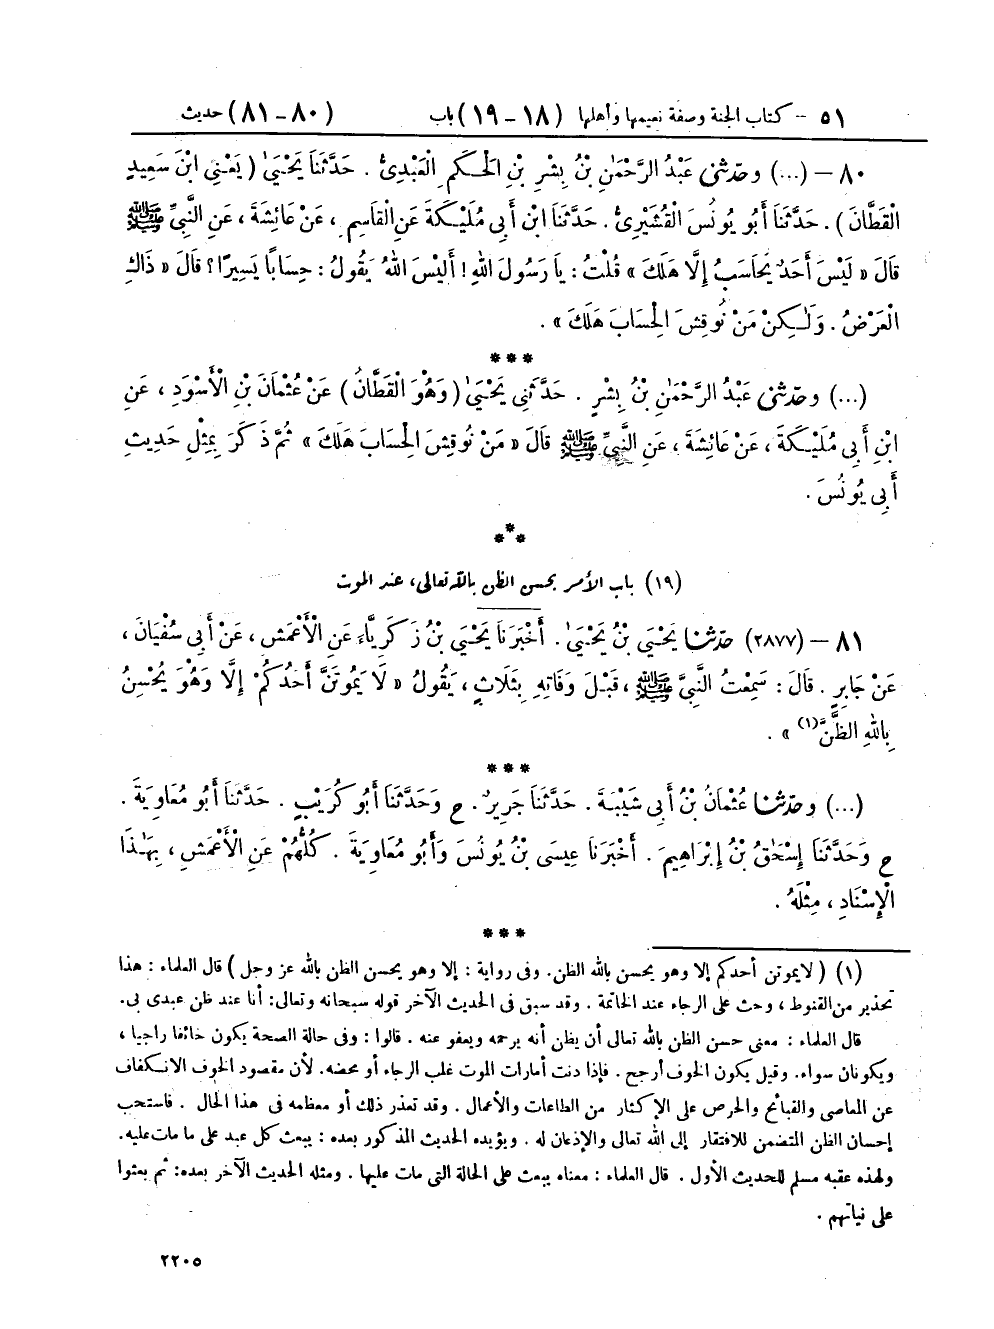 ٥١ – كتاب الجنة وصفة نعيمها وأهلها (١٨ – ١٩) باب (٨٠ – ٨١) حديث
٨٠ – (...) وحَدَّثَنِي عَبْدُ الرَّحْمَٰنِ بْنُ بِشْرِ بْنِ الْحَكَمِ الْعَبْدِيُّ . حَدَّثَنَا يَحْيَىٰ ( يَعْنِي ابْنَ سَعِيدٍ
الْقَطَّانَ ) . حَدَّثَنَا أَبُو يُونُسَ الْقُشَيْرِيُّ . حَدَّثَنَا ابْنُ أَبِي مُلَيْكَةَ عَنِ الْقَاسِمِ ، عَنْ عَائِشَةَ ، عَنِ النَّبِيِّ ﷺ
قَالَ « لَيْسَ أَحَدٌ يُحَاسَبُ إِلَّا هَلَكَ » قُلْتُ : يَا رَسُولَ اللهِ ! أَلَيْسَ اللهُ يَقُولُ : حِسَابًا يَسِيرًا ؟ قَالَ « ذَاكِ
الْعَرْضُ . وَلَـٰكِنْ مَنْ نُوقِشَ الْحِسَابَ هَلَكَ » .
***
(...) وحَدَّثَنِي عَبْدُ الرَّحْمَٰنِ بْنُ بِشْرٍ . حَدَّثَنِي يَحْيَىٰ ( وَهُوَ الْقَطَّانُ ) عَنْ عُثْمَانَ بْنِ الْأَسْوَدِ ، عَنِ
ابْنِ أَبِي مُلَيْكَةَ ، عَنْ عَائِشَةَ ، عَنِ النَّبِيِّ ﷺ قَالَ « مَنْ نُوقِشَ الْحِسَابَ هَلَكَ » ثُمَّ ذَكَرَ بِمِثْلِ حَدِيثِ
أَبِي يُونُسَ .
***
(١٩) باب الأمر بحسن الظن بالله تعالى، عند الموت
٨١ – (٢٨٧٧) حَدَّثَنَا يَحْيَىٰ بْنُ يَحْيَىٰ . أَخْبَرَنَا يَحْيَىٰ بْنُ زَكَرِيَّاءَ عَنِ الْأَعْمَشِ ، عَنْ أَبِي سُفْيَانَ ،
عَنْ جَابِرٍ . قَالَ : سَمِعْتُ النَّبِيَّ ﷺ ، قَبْلَ وَفَاتِهِ بِثَلَاثٍ ، يَقُولُ « لَا يَمُوتَنَّ أَحَدُكُمْ إِلَّا وَهُوَ يُحْسِنُ
بِاللهِ الظَّنَّ (١) » .
***
(...) وحَدَّثَنَا عُثْمَانُ بْنُ أَبِي شَيْبَةَ . حَدَّثَنَا جَرِيرٌ . ح وَحَدَّثَنَا أَبُو كُرَيْبٍ . حَدَّثَنَا أَبُو مُعَاوِيَةَ .
ح وَحَدَّثَنَا إِسْحَٰقُ بْنُ إِبْرَاهِيمَ . أَخْبَرَنَا عِيسَى بْنُ يُونُسَ وَأَبُو مُعَاوِيَةَ . كُلُّهُمْ عَنِ الْأَعْمَشِ ، بِهَٰذَا
الْإِسْنَادِ ، مِثْلَهُ .
***
(١) ( لا يموتن أحدكم إلا وهو يحسن بالله الظن. وفى رواية : إلا وهو يحسن الظن بالله عز وجل ) قال العلماء : هذا
تحذير من القنوط ، وحث على الرجاء عند الخاتمة . وقد سبق فى الحديث الآخر قوله سبحانه وتعالى: أنا عند ظن عبدى بى.
قال العلماء : معنى حسن الظن بالله تعالى أن يظن أنه يرحمه ويعفو عنه . قالوا : وفى حالة الصحة يكون خائفا راجيا ،
ويكونان سواء. وقيل يكون الخوف أرجح . فإذا دنت أمارات الموت غلب الرجاء أو محضه. لأن مقصود الخوف الانكفاف
عن المعاصى والقبائح والحرص على الإكثار من الطاعات والأعمال . وقد تعذر ذلك أو معظمه فى هذا الحال . فاستحب
إحسان الظن المتضمن للافتقار إلى الله تعالى والإذعان له . ويؤيده الحديث المذكور بعده : يبعث كل عبد على ما مات عليه.
ولهذه عقبه مسلم للحديث الأول . قال العلماء : معناه يبعث على الحالة التى مات عليها . ومثله الحديث الآخر بعده: ثم بعثوا
على نياتهم .
٢٢٠٥